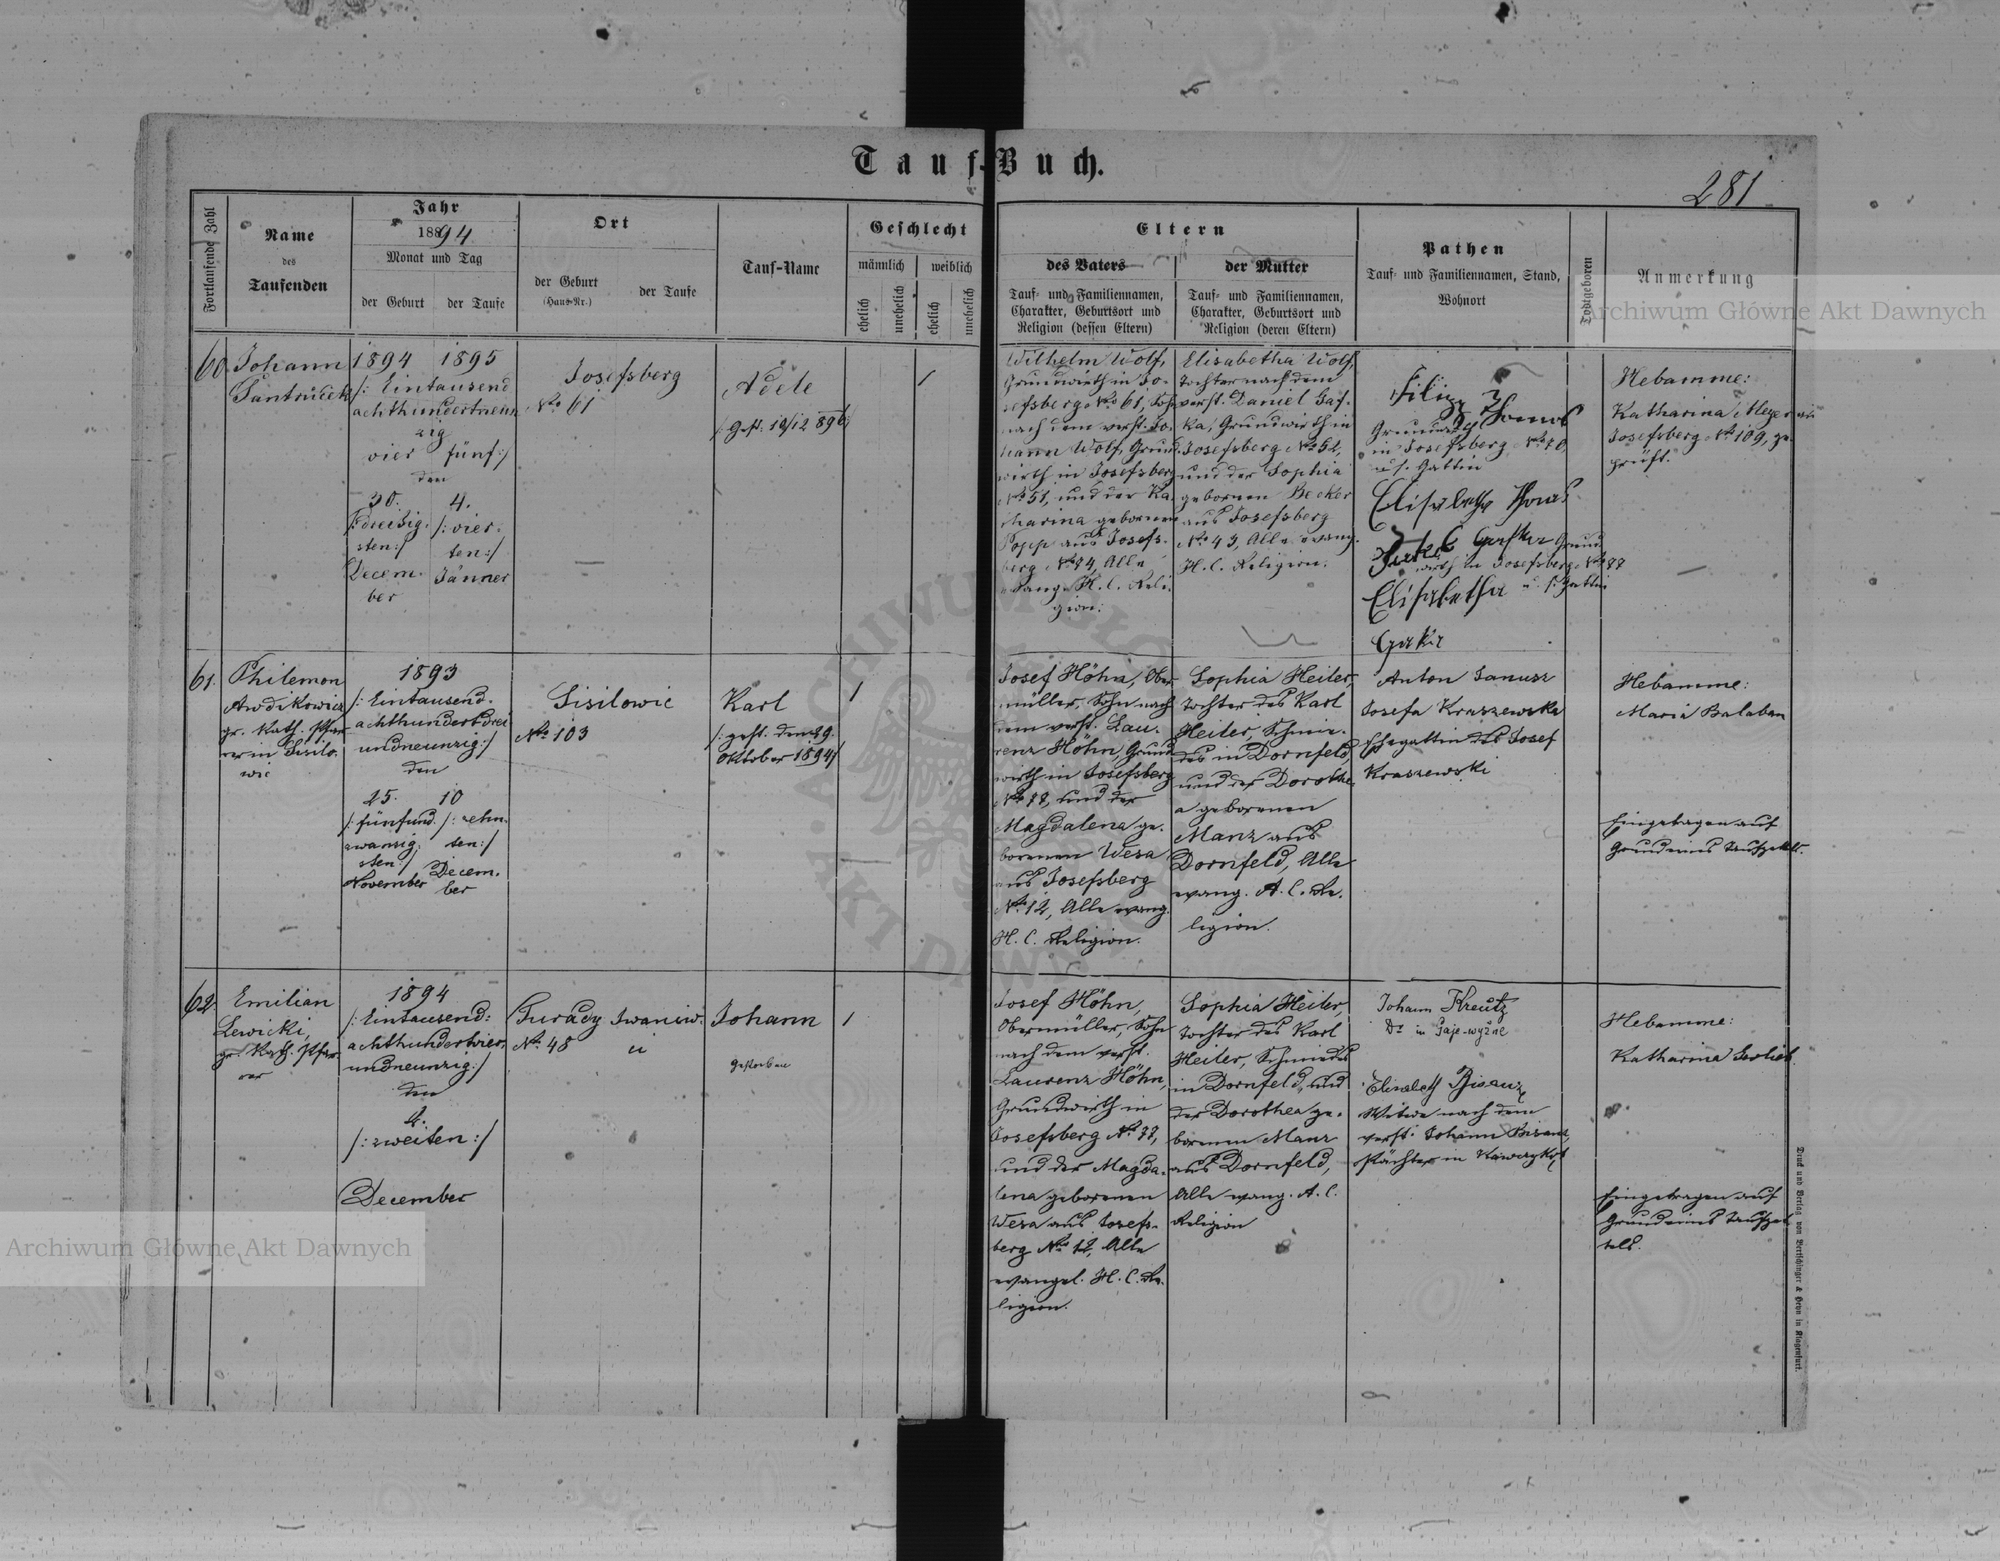 Tauf-Buch.
281
Fortlaufende Zahl
Name
des
Taufenden
Jahr
1894
Monat und Tag
der Geburt
der Taufe
Ort
der Geburt
(Haus-Nr.)
der Taufe
Tauf-Name
Geschlecht
männlich
weiblich
ehelich
unehelich
ehelich
unehelich
Eltern
des Vaters
Tauf- und Familiennamen,
Charakter, Geburtsort und
Religion (dessen Eltern)
der Mutter
Tauf- und Familiennamen,
Charakter, Geburtsort und
Religion (deren Eltern)
Pathen
Tauf- und Familiennamen, Stand,
Wohnort
Todtgeboren
Anmerkung
60.
Johann
1894 1895
/: Eintausend
achthundertneun
zig
vier fünf:/
den
30. 4.
/:dreisig- /:vier-
sten:/ ten:/
Decem- Jänner
ber
Josefsberg
No 61
Adele
/: gest. 12/12 896
/
Wilhelm Wolf,
Grundwirth in Jo-
sefsberg No 61, Sohn
nach dem verst. Jo-
hann Wolf, Grund-
wirth in Josefsberg
No 51, und der Ka-
tharina gebornen
Popp aus Josefs-
berg No 84, Alle
evang. H. C. Reli-
gion.
Elisabetha Wolf,
Tochter nach dem
verst. Daniel Gaf-
ka, Grundwirth in
Josefsberg No 52,
und der Sophia
gebornen Becker
aus Josefsberg
No 43, Alle evang.
H. C. Religion.
Filipp Thomas
Grundwirth
in Josefsberg No 70
u. s. Gattin
Elisabetha
Jakob Gafka Grund-
wirth in Josefsberg No 88
Elisabetha u. s. Gattin
Gafka
Hebamme:
Katharina Meyer in
Josefsberg No 109, ge-
prüft.
61.
Philemon
Awdikowicz
gr. kath. Pfar-
rer in Sisilo-
wic
1893
/: Eintausend-
achthundertdrei
undneunzig:/
den
25. 10
/: fünfund- /: zehn-
zwanzig- ten:/
sten:/
November Decem-
ber
Sisilowic
No 103
Karl
/: gest. den 29.
Oktober 1894/
1
Josef Höhn, Ober-
müller, Sohn nach
dem verst. Lau-
renz Höhn, Grund-
wirth in Josefsberg
No 88, und der
Magdalena ge-
borenen Wesa
aus Josefsberg
No 12, Alle evang.
H. C. Religion.
Sophia Heiler,
Tochter des Karl
Heiler, Schmie-
des in Dornfeld,
und der Dorothe-
a geborenen
Manz aus
Dornfeld, Alle
evang. A. C. Re-
ligion.
Anton Janusz
Josefa Kraszewska
Ehegattin des Josef
Kraszewski
Hebamme:
Maria Balaban
Eingetragen auf
Grund eines Taufzettels.
62.
Emilian
Lewicki,
gr. kath. Pfar-
rer
1894
/: Eintausend-
achthundertvier-
undneunzig:/
den
2.
/: zweiten :/
December
No 48
Johann
Gestorben
1
Josef Höhn,
Obermüller, Sohn
nach dem verst.
Laurenz Höhn,
Grundwirth in
Josefsberg No 88,
und der Magda-
lena geborenen
Wesa aus Josefs-
berg No 12, Alle
evangel. H. C. Re-
ligion.
Sophia Heiler,
Tochter des Karl
Heiler, Schmiedes
in Dornfeld, und
der Dorothea ge-
borenen Manz
aus Dornfeld,
Alle evang. A. C.
Religion
Johann Kreutz
in Gaje-wyżne
Elisabeth Bisanz,
Witwe nach dem
verst. Johann Bisanz,
Pächter in
Hebamme:
Katharina
Eingetragen auf
Grund eines Taufzet-
tels.
Druck und Verlag von Bertschinger & Heyn in Klagenfurt.
Archiwum Główne Akt Dawnych
Archiwum Główne Akt Dawnych